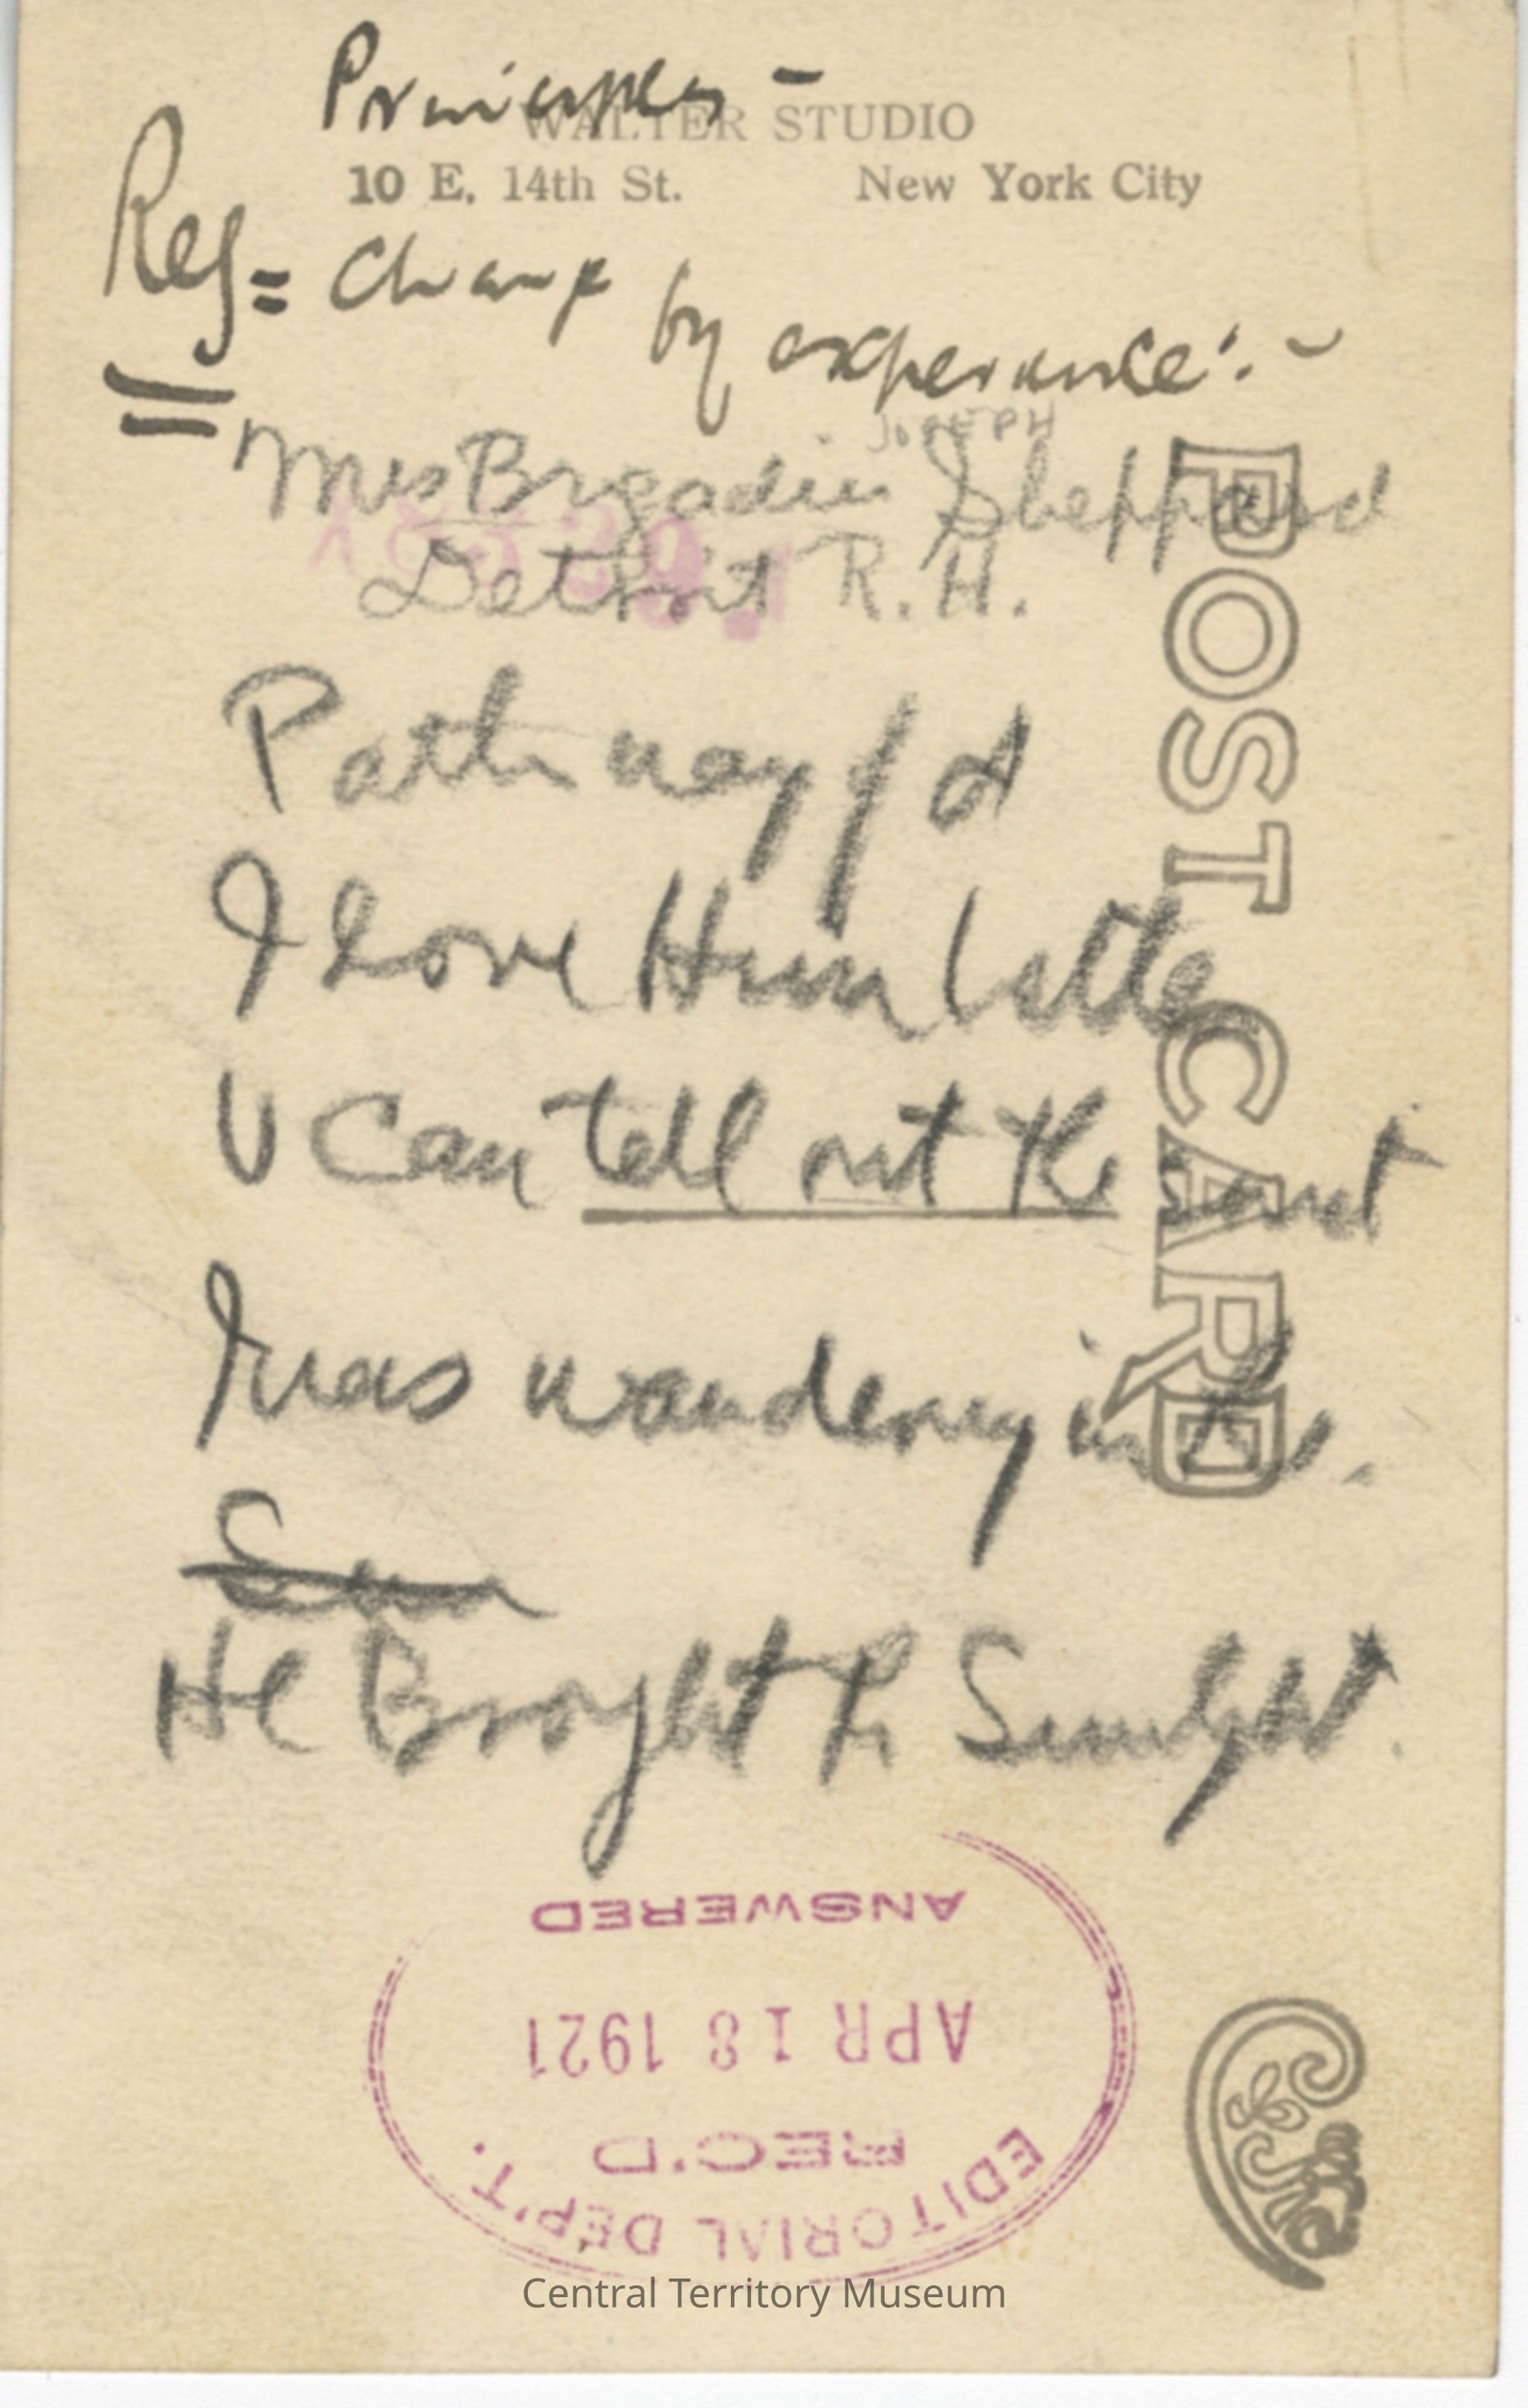 Principles -
WALTER STUDIO
10 E. 14th St. New York City
Reg = Change by experience: -
JOSEPH
Mrs Brigadier Sheppard
Detroit R.H.
Pathway of d
I love Him better
U Can tell out the sweet
I was wandering in the
He Brought the Sunlight.
POST CARD
ANSWERED
APR 18 1921
REC'D
EDITORIAL DEP'T.
Central Territory Museum